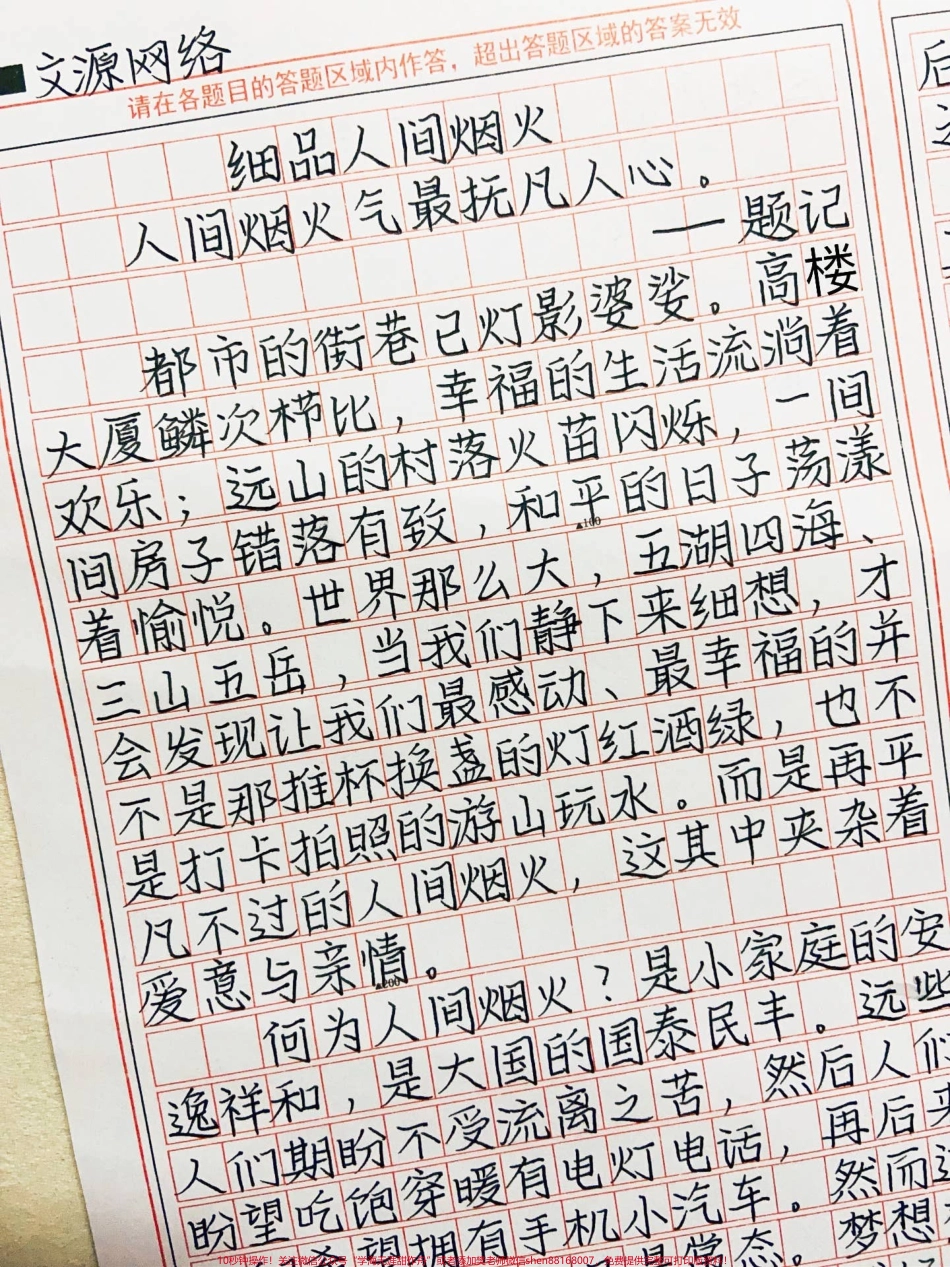 文源网络
请在各题目的答题区域内作答，超出答题区域的答案无效
细品人间烟火
人间烟火气最抚凡人心。
——题记
都市的街巷已灯影婆娑。高楼
大厦鳞次栉比，幸福的生活流淌着
欢乐；远山的村落火苗闪烁，一间
间房子错落有致，和平的日子荡漾
▲100
着愉悦。世界那么大，五湖四海、
三山五岳，当我们静下来细想，才
会发现让我们最感动、最幸福的并
不是那推杯换盏的灯红酒绿，也不
是打卡拍照的游山玩水。而是再平
凡不过的人间烟火，这其中夹杂着
爱意与亲情。
▲200
何为人间烟火？是小家庭的安
逸祥和，是大国的国泰民丰。远些
人们期盼不受流离之苦，然后人们
盼望吃饱穿暖有电灯电话，再后来
望拥有手机小汽车。然而这
常态。梦想
后